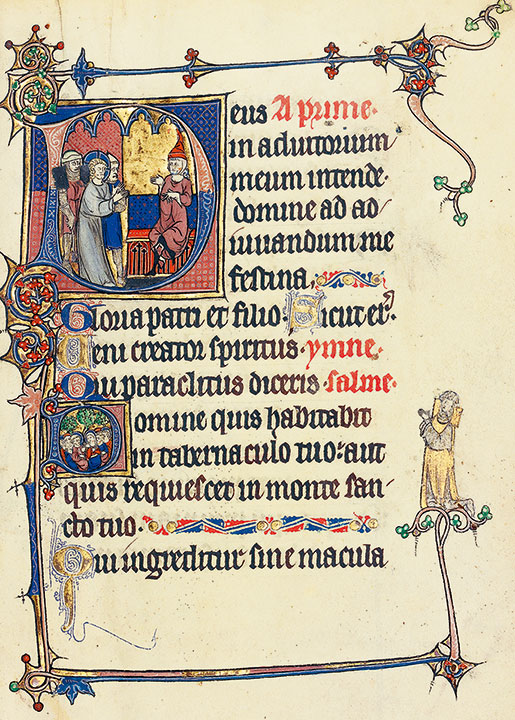 Deus A prime.
in adiutorium
meum intende.
domine ad ad
iuuandum me
festina,
Gloria patri et filio. Sicut er.
Ueni creator spiritus. ymne.
Qui paraclitus diceris. salme.
Domine quis habitabit
in tabernaculo tuo: aut
quis requiescet in monte san
cto tuo.
Qui ingreditur sine macula